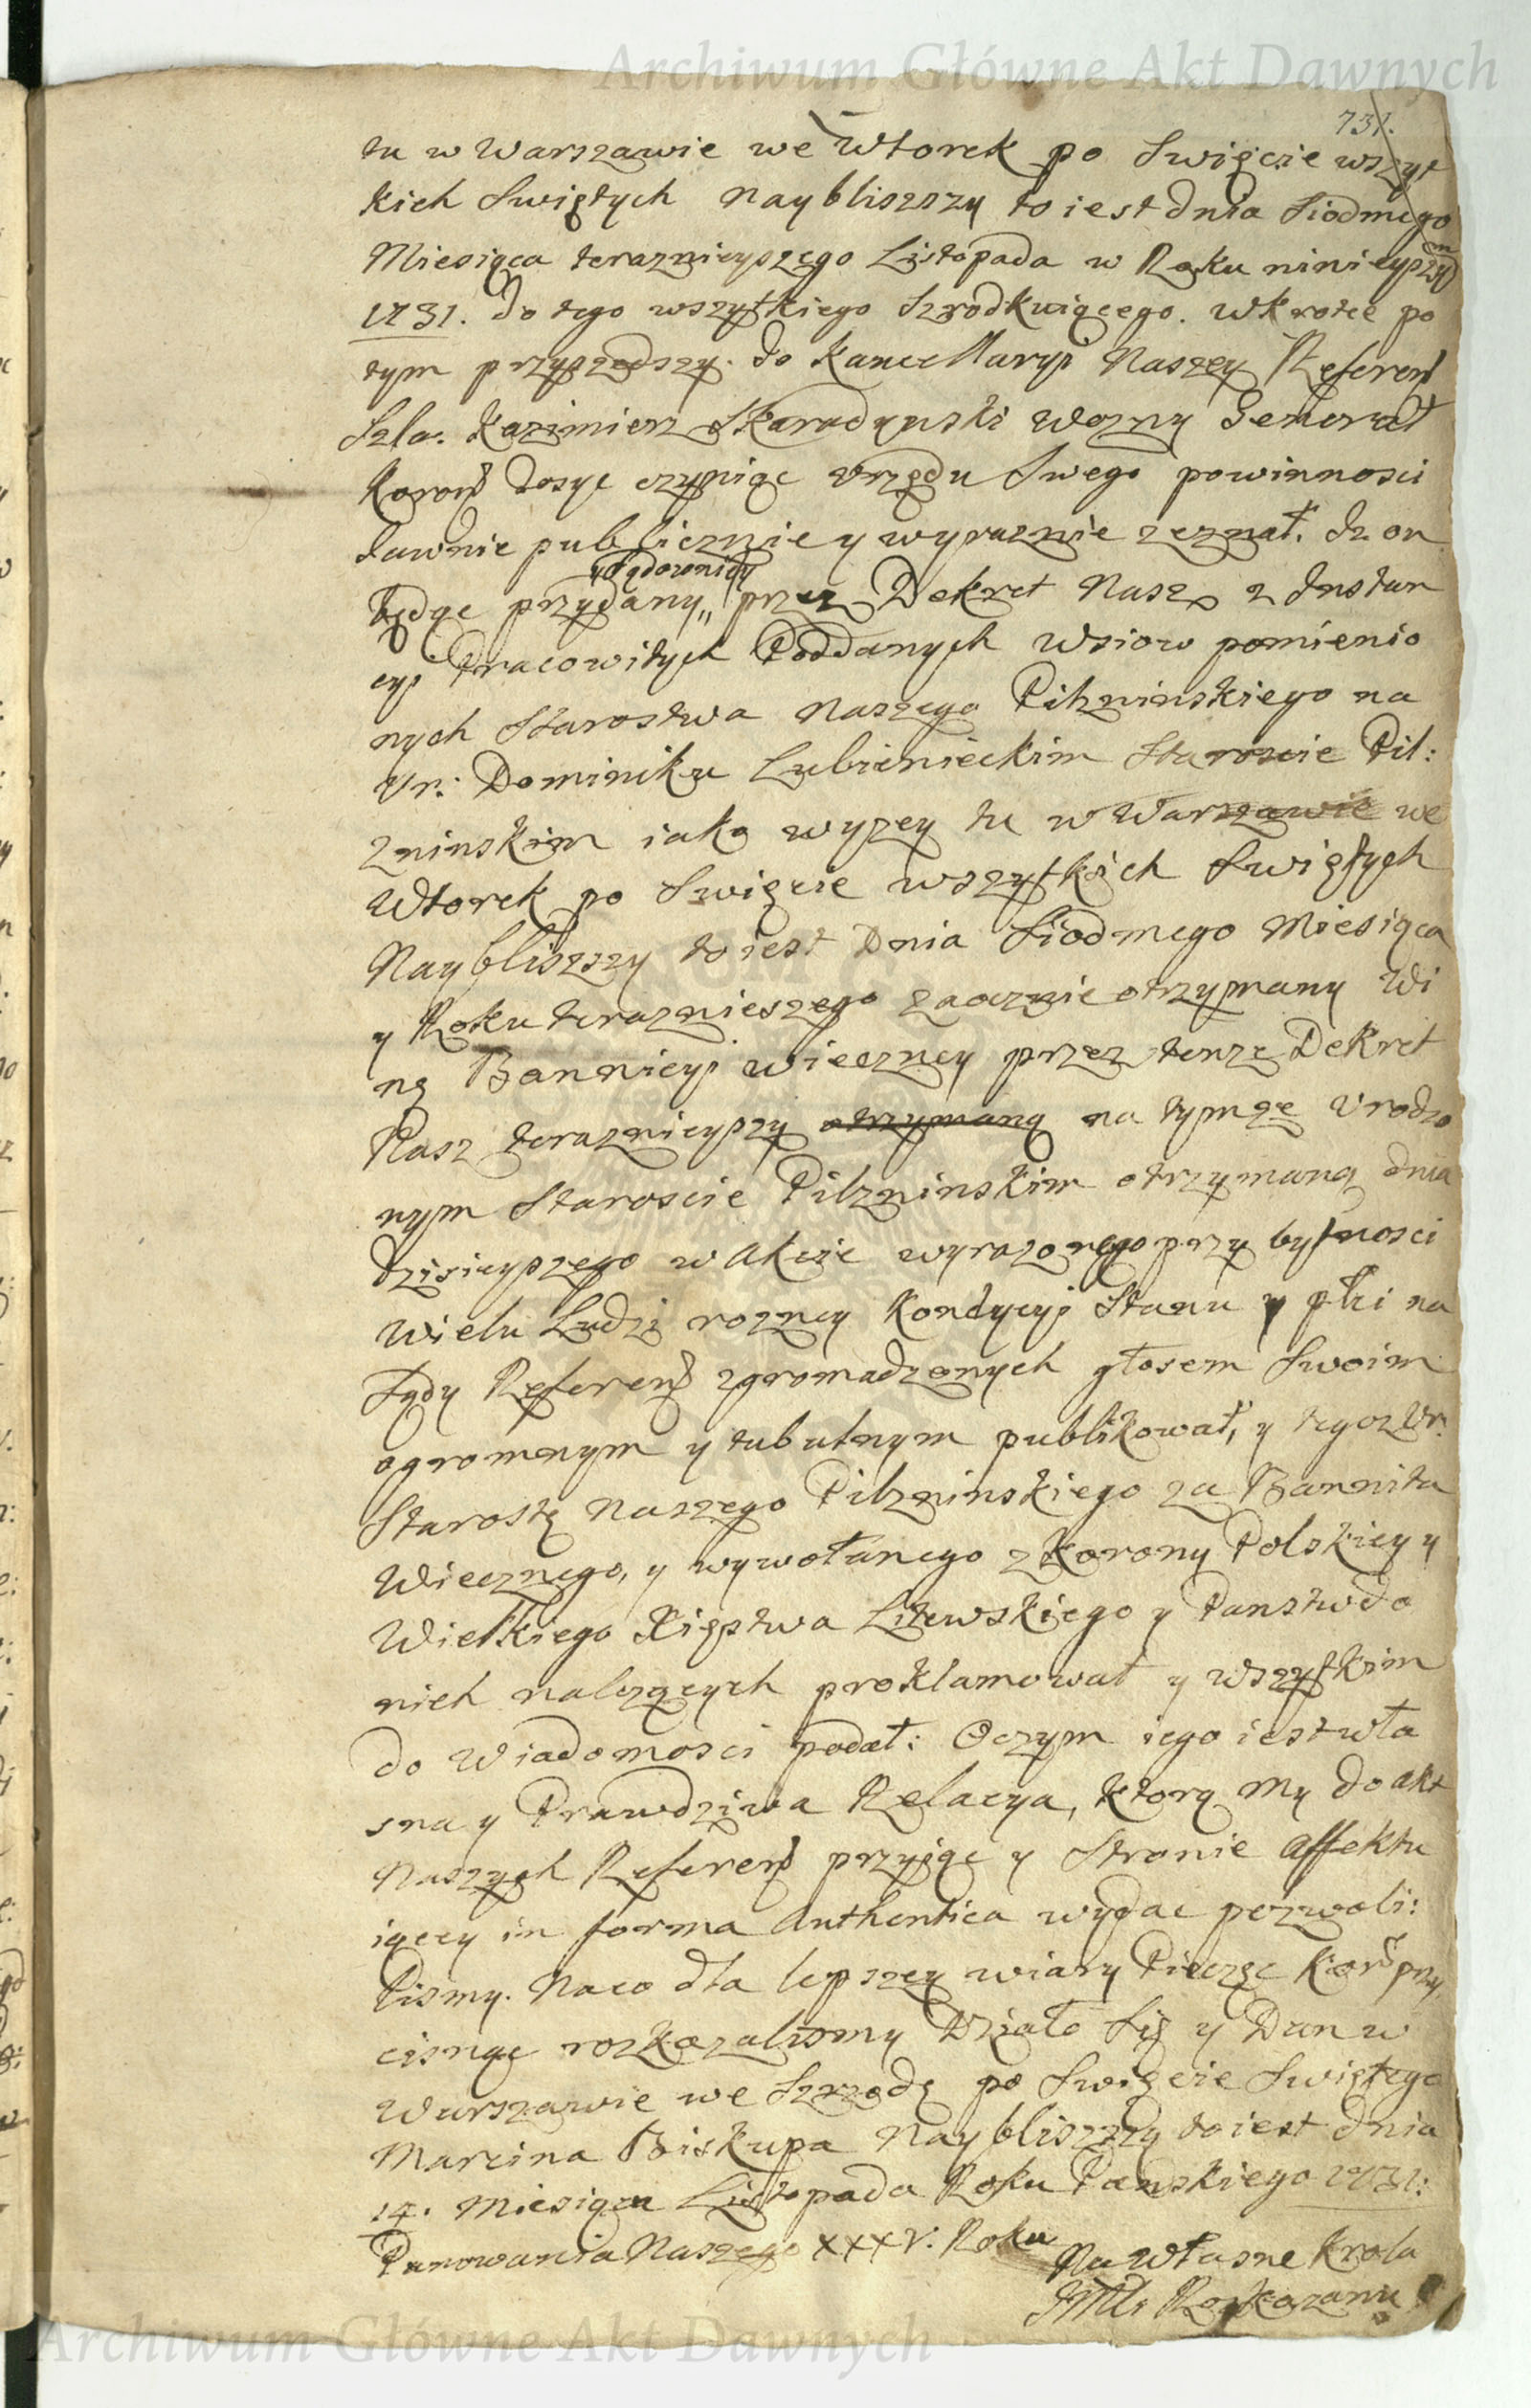 Archiwum Główne Akt Dawnych
731.
tu w Warszawie we Wtorek po Swięcie wszyt
kich Swiętych naybliszszy to iest dnia Siodmego
Miesiąca teraznieyszego Listopada w Roku ninieyszym
1731. do tego wszytkiego Szrodkuiącego. Wkrotce po
tym przyszedszy do Kancellaryi Naszey Referen
Szla: Kazimierz Skaradynski Wozny Generał
Koron dosyc czyniąc Vrzędu Swego powinnosci
Iawnie publicznie y wyraznie zeznał. Iz on
ySądownicy
będąc przydany,, przez Dekret Nasz z Instan
cyi Pracowitych Poddanych Wsiow pomienio
nych Starostwa Naszego Pilzninskiego na
Vr: Dominiku Lubienieckim Staroscie Pil:
zninskim iako wyzey tu w Warszawie we
Wtorek po Swięcie wszytkich Swiętych
Naybliszszy to iest Dnia Siodmego Miesiąca
y Roku teraznieszego zaocznie otrzymany Wi
nę Bannicyi wieczney przez tenze Dekret
Nasz teraznieyszy otrzymaną na tymze Vrodzo
nym Staroscie Pilzninskim otrzymaną dnia
dzisieyszego w Akcie wyrazonego przy bytnosci
Wielu Ludzi rozney Kondycyi Stanu y płci na
Sądy Referen zgromadzonych głosem Swoim
ogromnym y tubalnym publikował, y tegoz Vr:
Starostę Naszego Pilzninskiego za Bannita
Wiecznego, y wywołanego z Korony Polskiey y
Wielkiego Xięstwa Litewskiego y Panstw do
nich nalezących proklamował y wszytkim
do Wiadomosci podał: Oczym iego iest wła
sna y Prawdziwa Relacya, ktorą My do Akt
Naszych Referen przyiąc y Stronie Affektu
iącey in forma Authentica wydac pozwoli:
lismy. Naco dla lepszey wiary Pieczęc Kor przy
cisnąc rozkazalismy Działo Się y Dan w
Warszawie we Szrzodę po Swięcie Swiętego
Marcina Biskupa Naybliszszą to iest dnia
14. Miesiąca Listopada Roku Panskiego 1731:
Panowania Naszego XXXV. Roku
Na Własne Krola
JMCi Rozkazanie
Archiwum Główne Akt Dawnych